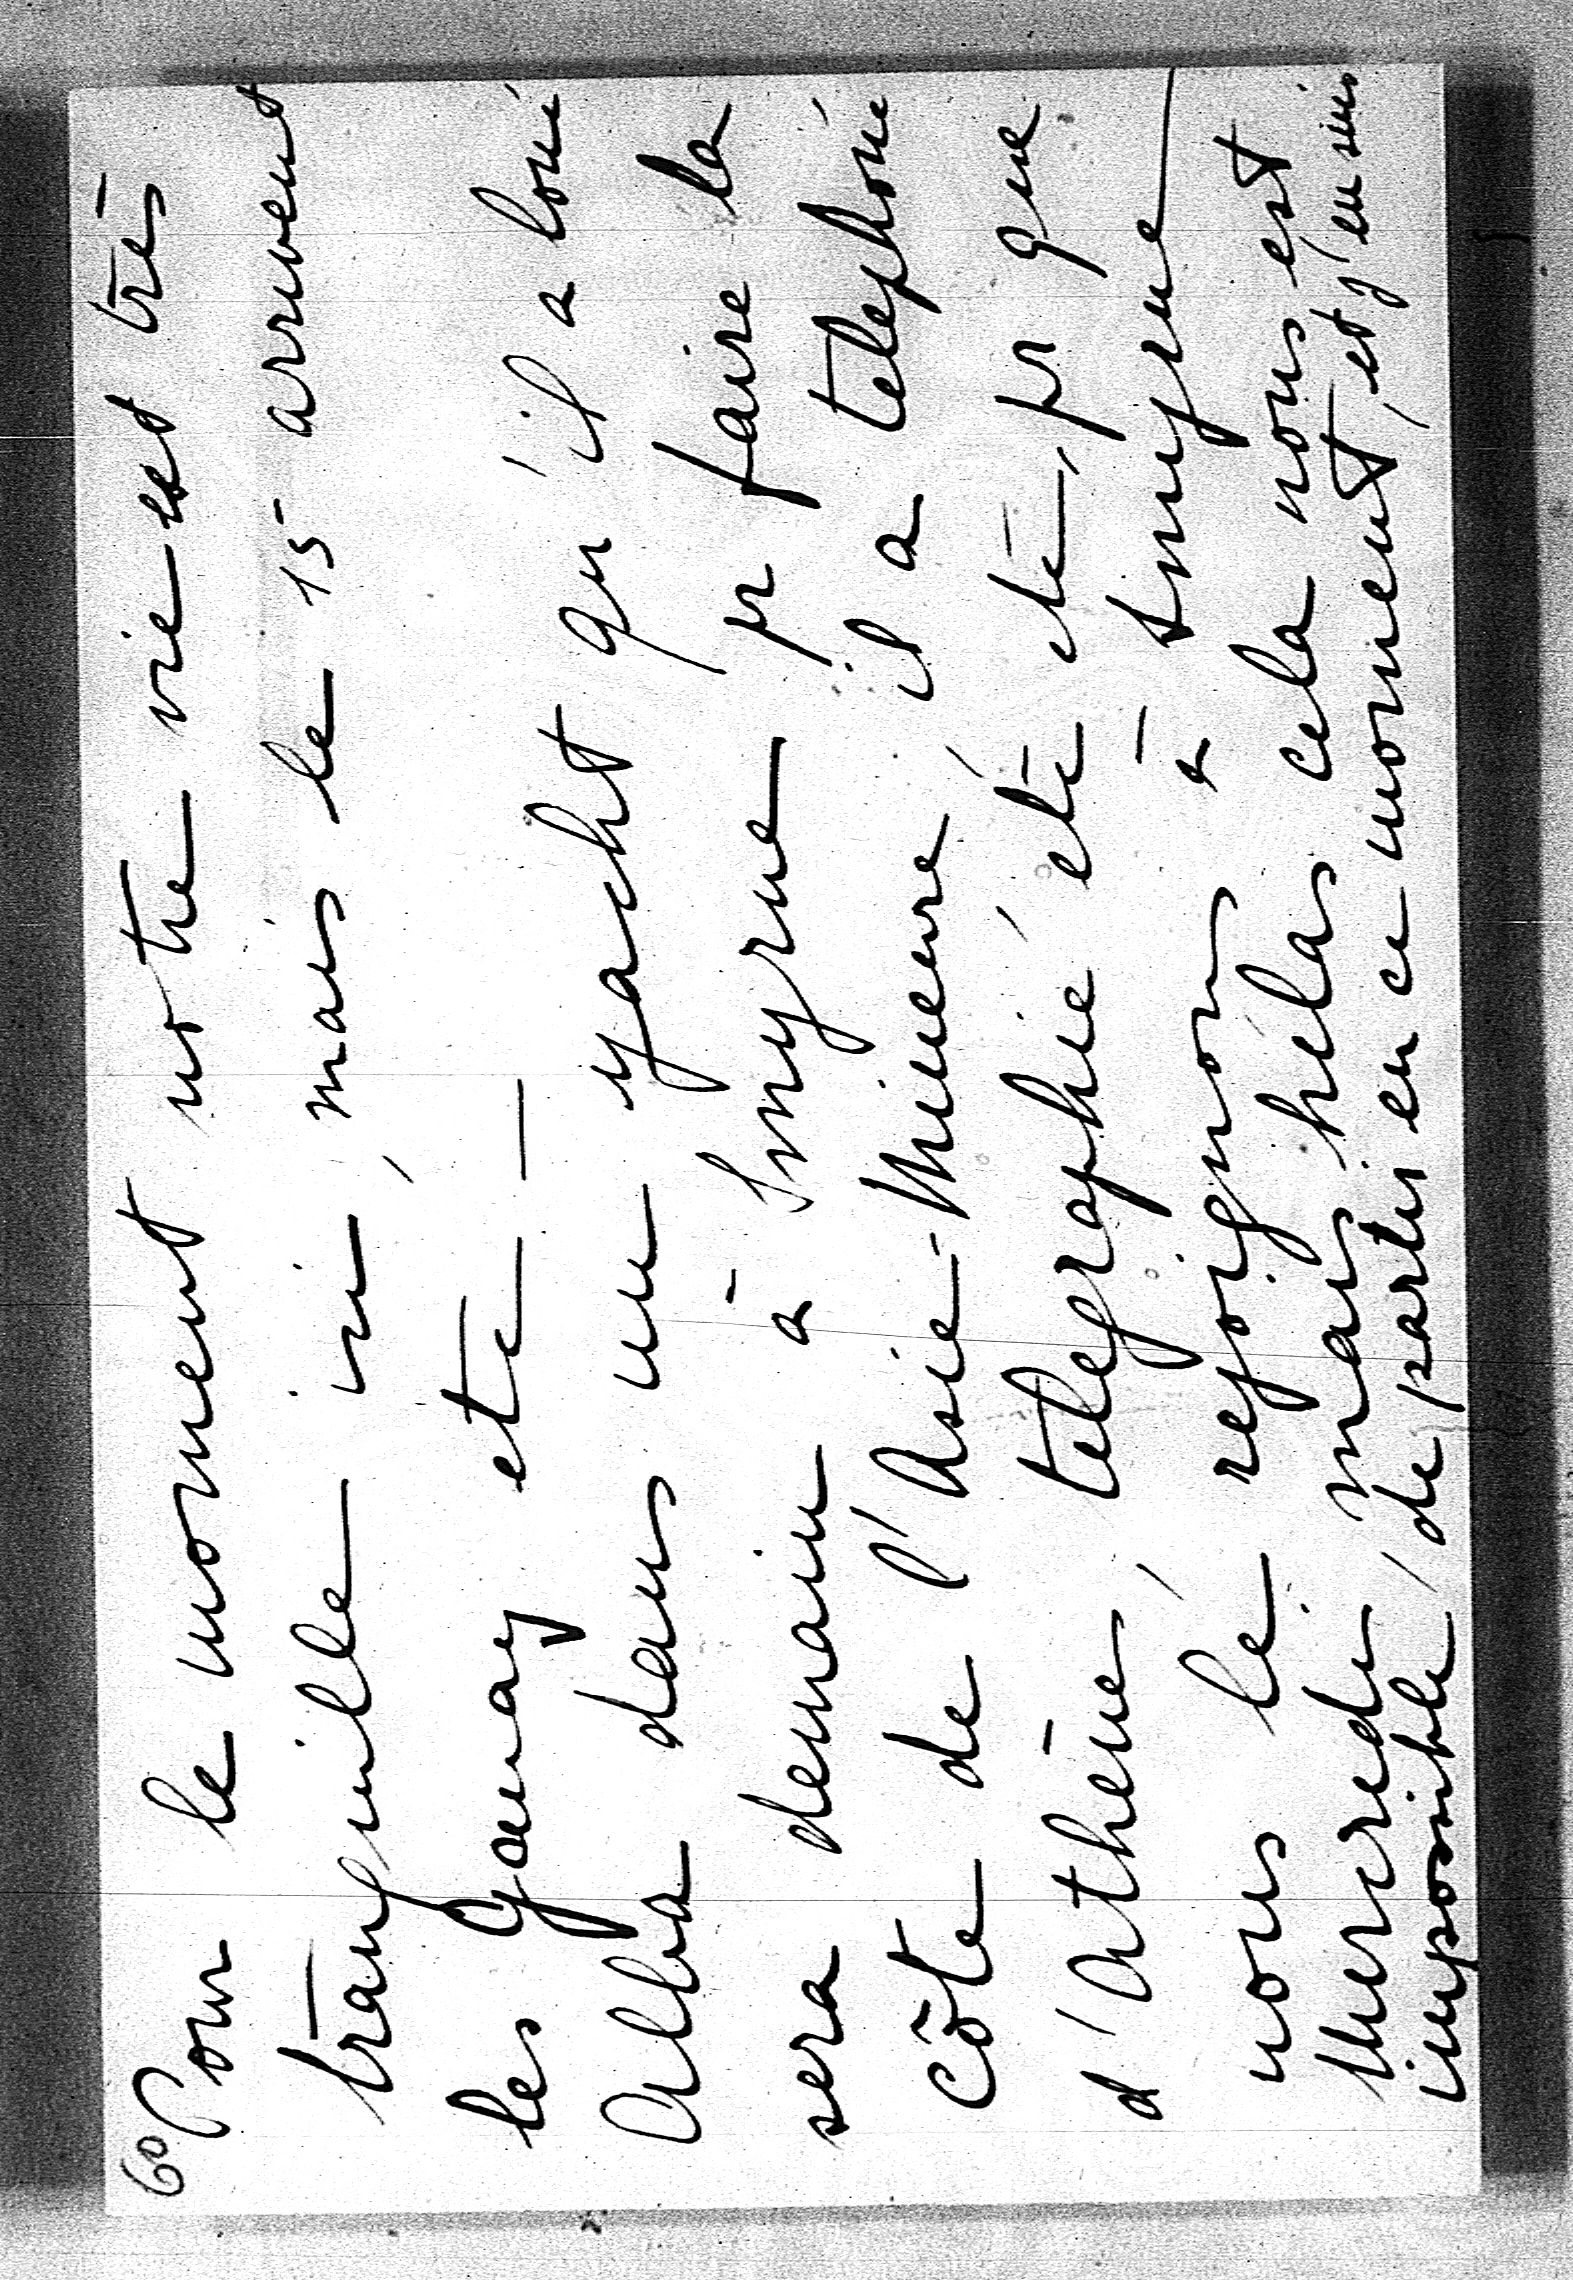 60
Pour le moment notre vie est très
tranquille ici, mais le 15 arrivent
les Gounay etc —
Allia dans un yacht qu'il a loué
sera demain à Smyrne pr faire la
côte de l'Asie-Mineure, il a telephoné
d'Athène, telegraphié, etc etc, pr que
nous le rejoignon à Smyrne
Mercredi, mais hélas cela nous est
impossible, de partir en ce moment, et j'en suis